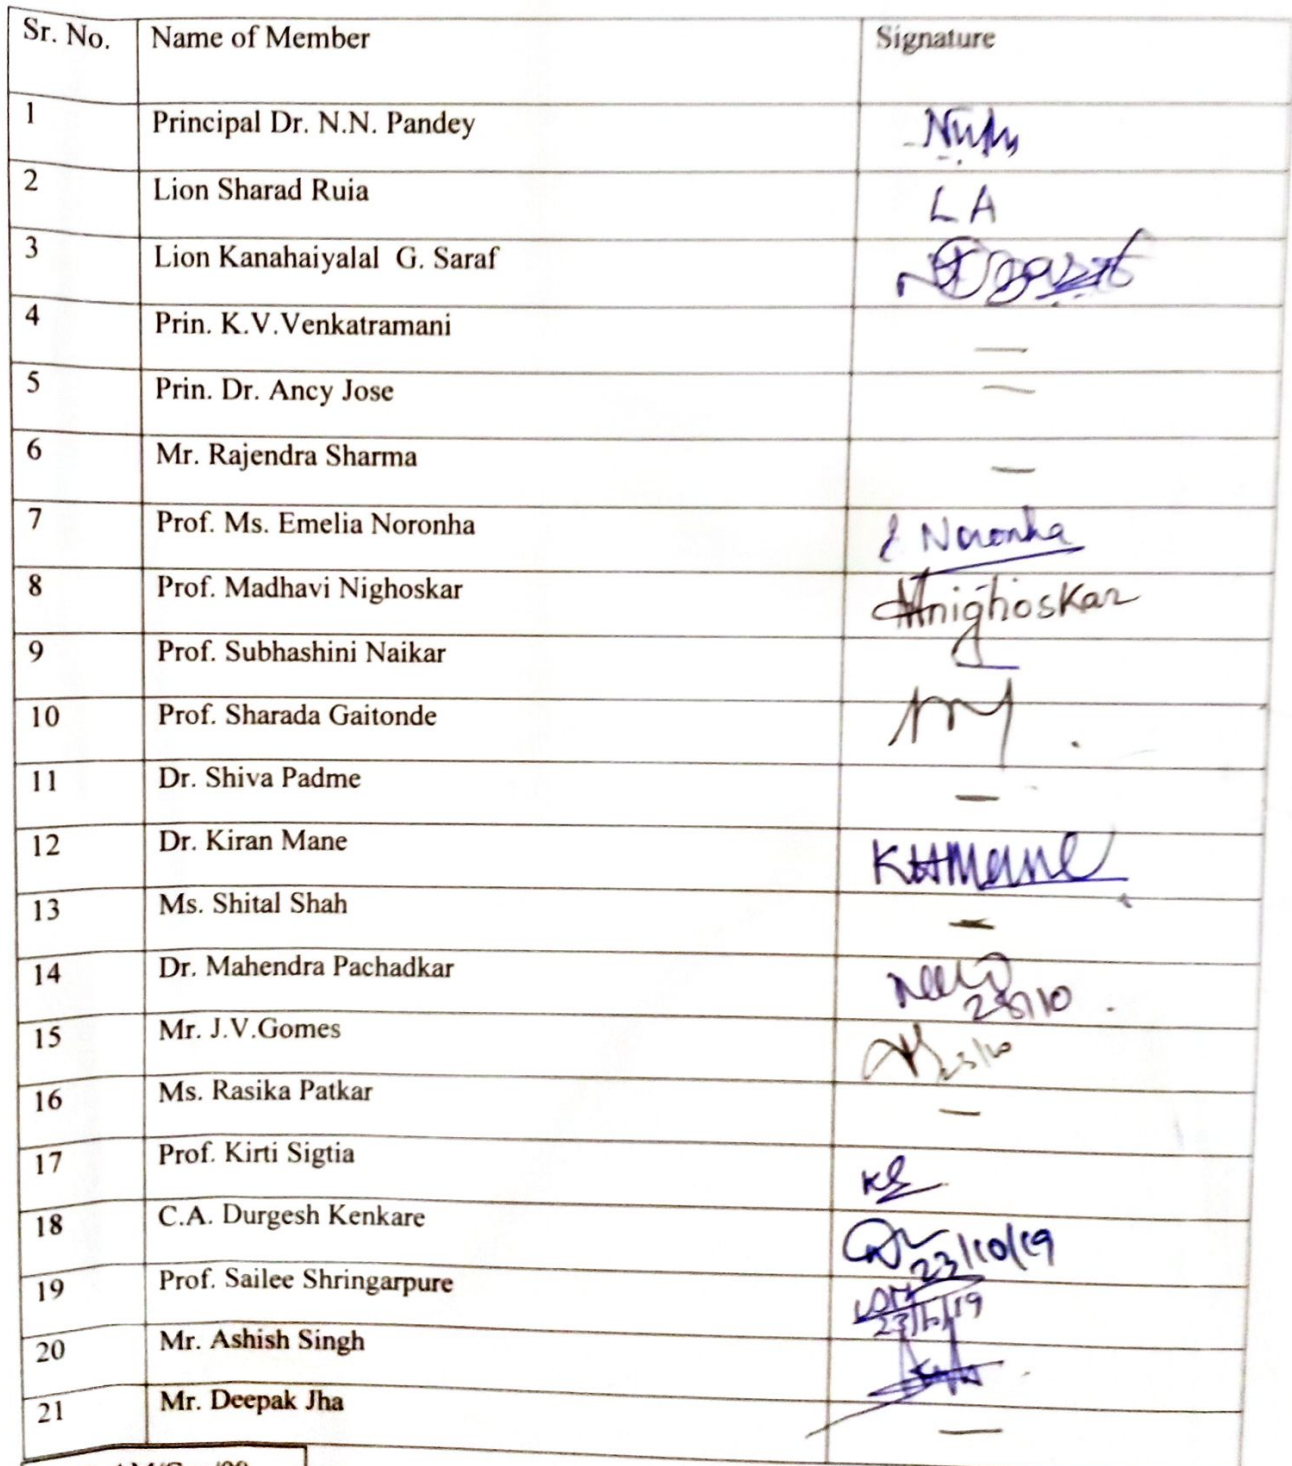 Sr. No. Name of Member Signature
1 Principal Dr. N.N. Pandey
2 Lion Sharad Ruia L A
3 Lion Kanahaiyalal G. Saraf
4 Prin. K.V.Venkatramani —
5 Prin. Dr. Ancy Jose —
6 Mr. Rajendra Sharma —
7 Prof. Ms. Emelia Noronha E Noronha
8 Prof. Madhavi Nighoskar Mnighoskar
9 Prof. Subhashini Naikar —
10 Prof. Sharada Gaitonde
11 Dr. Shiva Padme —
12 Dr. Kiran Mane KHMane
13 Ms. Shital Shah —
14 Dr. Mahendra Pachadkar 23/10
15 Mr. J.V.Gomes 23/10
16 Ms. Rasika Patkar —
17 Prof. Kirti Sigtia KS
18 C.A. Durgesh Kenkare 23/10/19
19 Prof. Sailee Shringarpure 23/10/19
20 Mr. Ashish Singh
21 Mr. Deepak Jha —